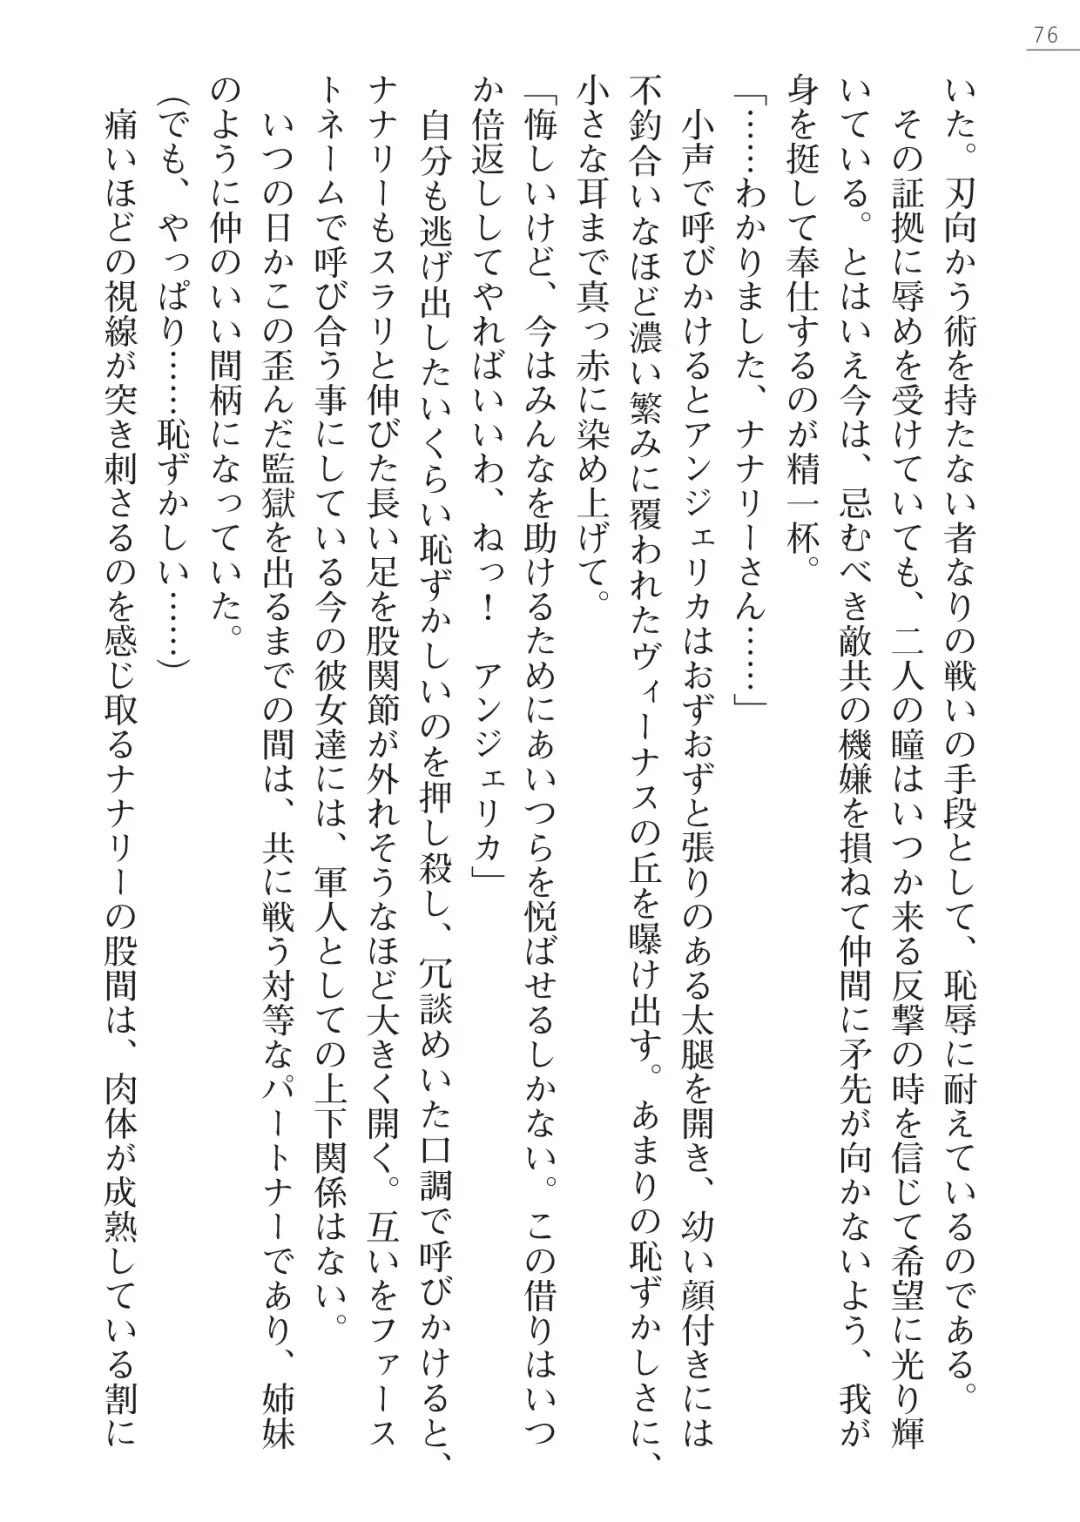 76
いた。刃向かう術を持たない者なりの戦いの手段として、恥辱に耐えているのである。
その証拠に辱めを受けていても、二人の瞳はいつか来る反撃の時を信じて希望に光り輝
いている。とはいえ今は、忌むべき敵共の機嫌を損ねて仲間に矛先が向かないよう、我が
身を挺して奉仕するのが精一杯。
「……わかりました、ナナリーさん……」
小声で呼びかけるとアンジェリカはおずおずと張りのある太腿を開き、幼い顔付きには
不釣合いなほど濃い繁みに覆われたヴィーナスの丘を曝け出す。あまりの恥ずかしさに、
小さな耳まで真っ赤に染め上げて。
「悔しいけど、今はみんなを助けるためにあいつらを悦ばせるしかない。この借りはいつ
か倍返ししてやればいいわ、ねっ！　アンジェリカ」
自分も逃げ出したいくらい恥ずかしいのを押し殺し、冗談めいた口調で呼びかけると、
ナナリーもスラリと伸びた長い足を股関節が外れそうなほど大きく開く。互いをファース
トネームで呼び合う事にしている今の彼女達には、軍人としての上下関係はない。
いつの日かこの歪んだ監獄を出るまでの間は、共に戦う対等なパートナーであり、姉妹
のように仲のいい間柄になっていた。
（でも、やっぱり……恥ずかしい……）
痛いほどの視線が突き刺さるのを感じ取るナナリーの股間は、肉体が成熟している割に